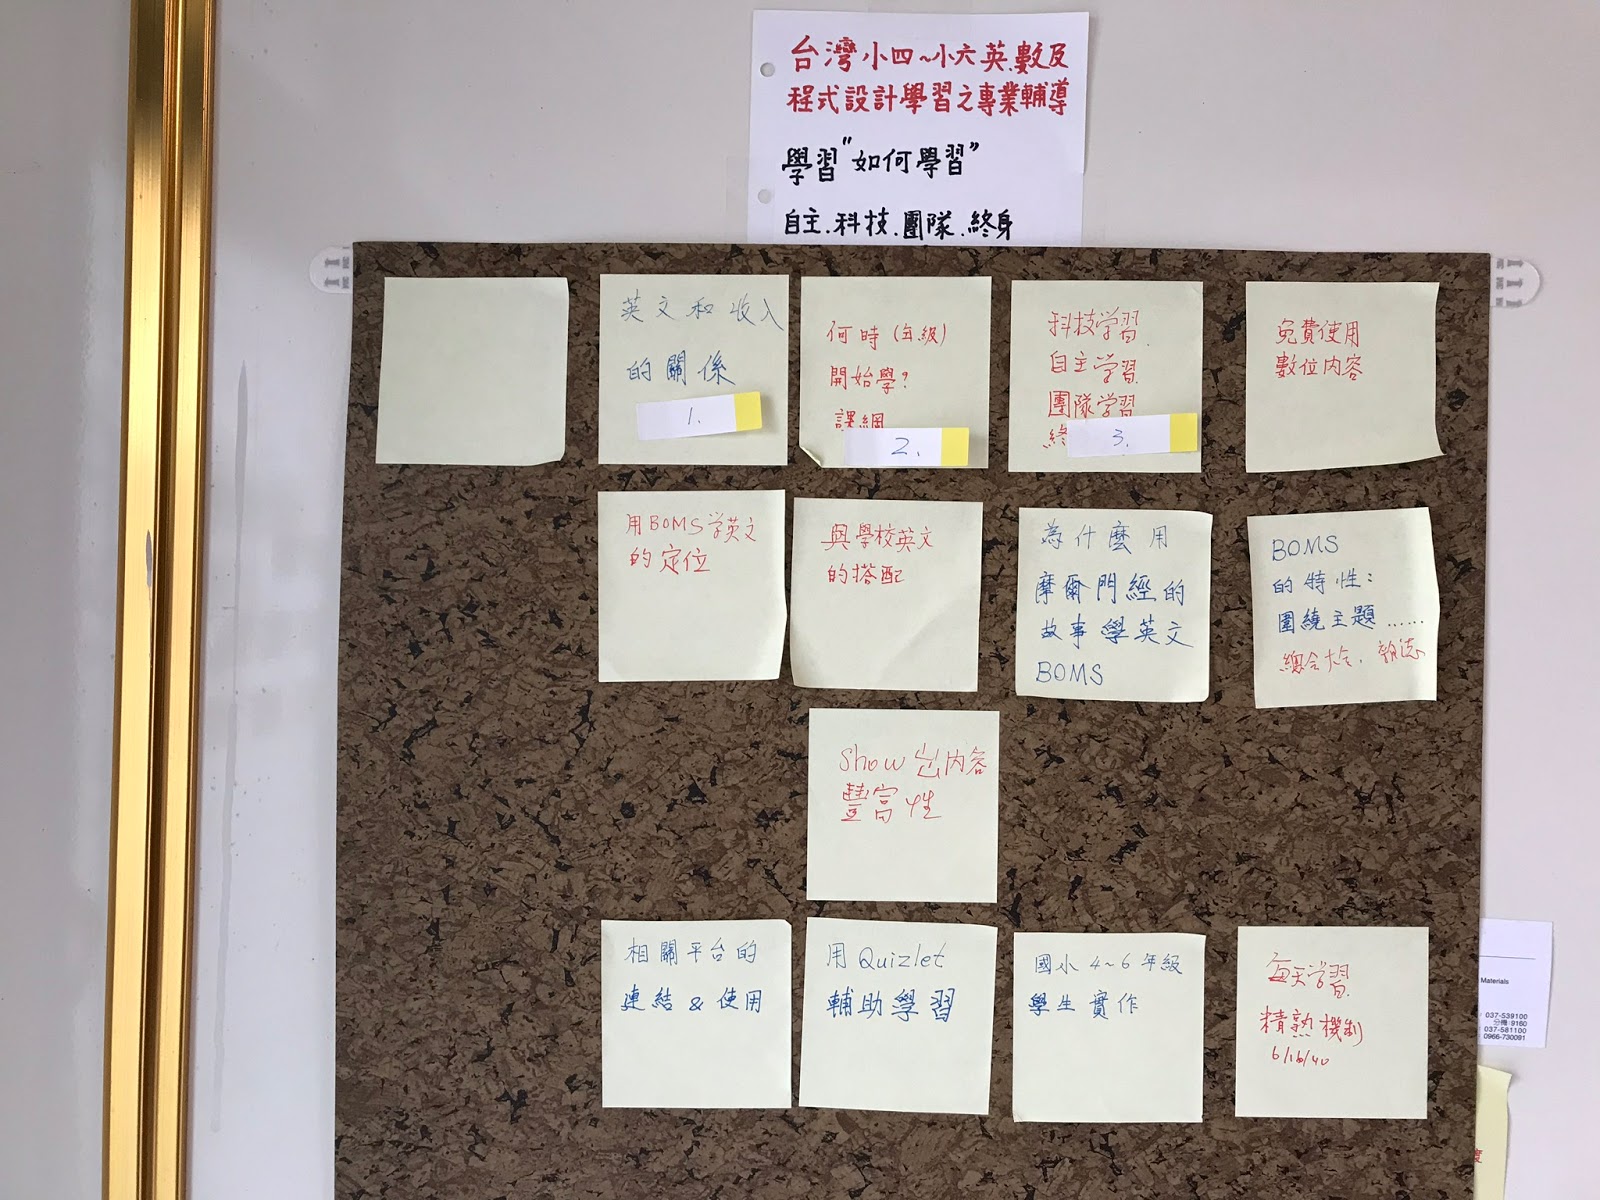 台灣小四~小六英.數及
程式設計學習之專業輔導
學習"如何學習"
自主.科技.團隊.終身
英文和收入
的關係
1.
何時(年級)
開始學?
課綱
2.
科技學習
自主學習
團隊学習
終
3.
免費使用
數位內容
用BOMS学英文
的定位
與學校英文
的搭配
為什麼用
摩爾門經的
故事學英文
BOMS
BOMS
的特性:
圍繞主題......
總合大全.
Show出內容
豐富性
相關平台的
連結&使用
用Quizlet
輔助學習
國小4~6年級
學生實作
每天学習
精熟機制
6/16/40
Materials
037-539100
分機:9160
037-581100
0966-730091